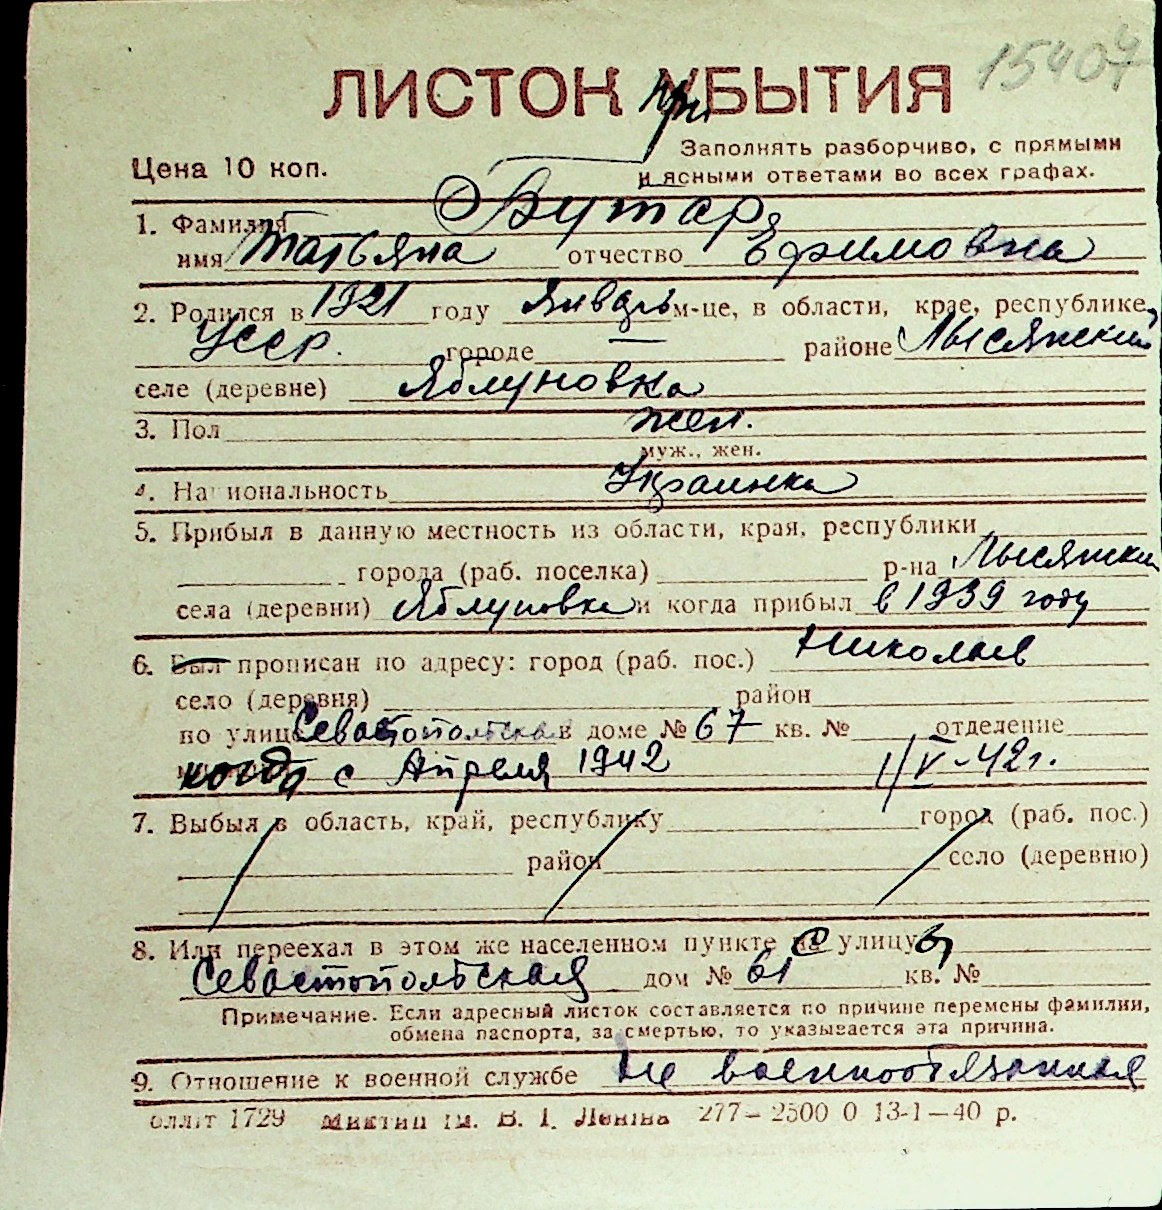 15404
ЛИСТОК УБЫТИЯ
При
Цена 10 коп.
Заполнять разборчиво, с прямыми
и ясными ответами во всех графах.
1. Фамилия Бутар
имя Татьяна отчество Ефимовна
2. Родился в 1921 году Январь м-це, в области, крае, республике,
Усср. городе — районе Лысянский
селе (деревне) Яблуновка
3. Пол жен.
муж., жен.
4. Национальность Украинка
5. Прибыл в данную местность из области, края, республики
города (раб. поселка) р-на Лысянски
села (деревни) Яблуновка и когда прибыл в 1939 году
6. Был прописан по адресу: город (раб. пос.) Николаев
село (деревня) район
по улице Севастопольская в доме № 67 кв. № отделение
когда с Апреля 1942 1/V-42г.
7. Выбыл в область, край, республику город (раб. пос.)
район село (деревню)
8. Или переехал в этом же населенном пункте с улицу
Севастопольская дом № 61 кв. №
Примечание. Если адресный листок составляется по причине перемены фамилии,
обмена паспорта, за смертью, то указывается эта причина.
9. Отношение к военной службе Не военнообязанная
1729 ім. В. І. Леніна 277–2500 0 13-1–40 р.